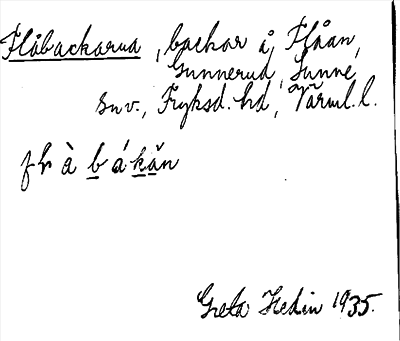 Flåbackarna, backar å Flåan,
Gunnerud, Sunne
sn v., Fryksd. hd, Värml. l.
flà bákän
Greta Hedin 1935.